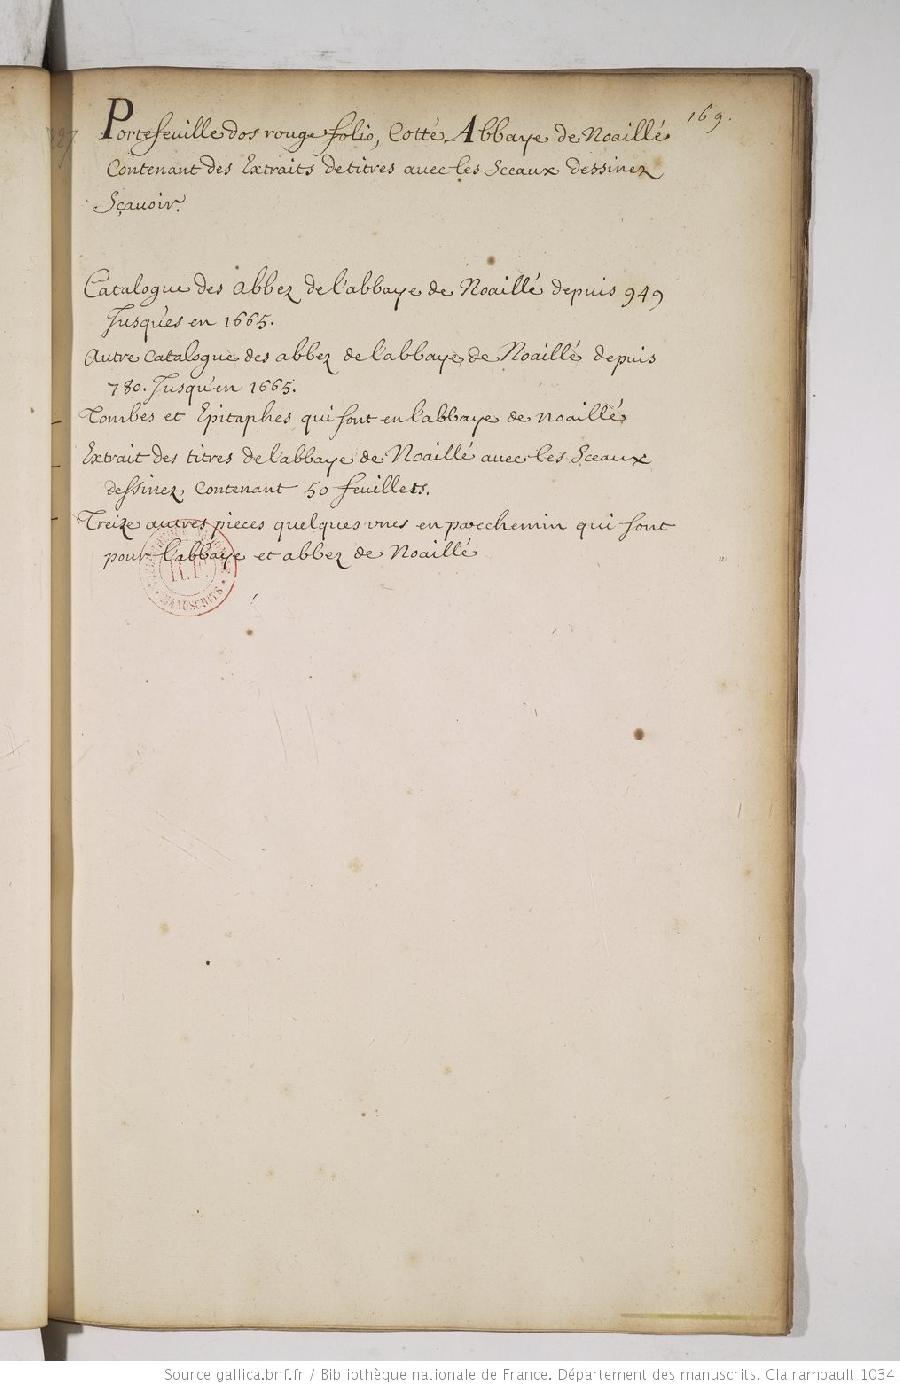 169.
Portefeuille dos rouge folio, Cotté Abbaye de Noaillé
Contenant des Extraits de titres avec les Sceaux dessinez
Sçavoir.
Catalogue des abbez de l'abbaye de Noaillé depuis 949
Jusques en 1665.
Autre catalogue des abbez de l'abbaye de Noaillé depuis
780. Jusqu'en 1665.
Tombes et Epitaphes qui sont en l'abbaye de Noaillé
Extrait des titres de l'abbaye de Noaillé avec les Sceaux
dessinez Contenant 50 feuillets.
Treize autres pieces quelques unes en parchemin qui sont
pour l'abbaye et abbez de Noaillé
R.F.
MANUSCRITS
Source gallica.bnf.fr / Bibliothèque nationale de France. Département des manuscrits. Clairambault 1034